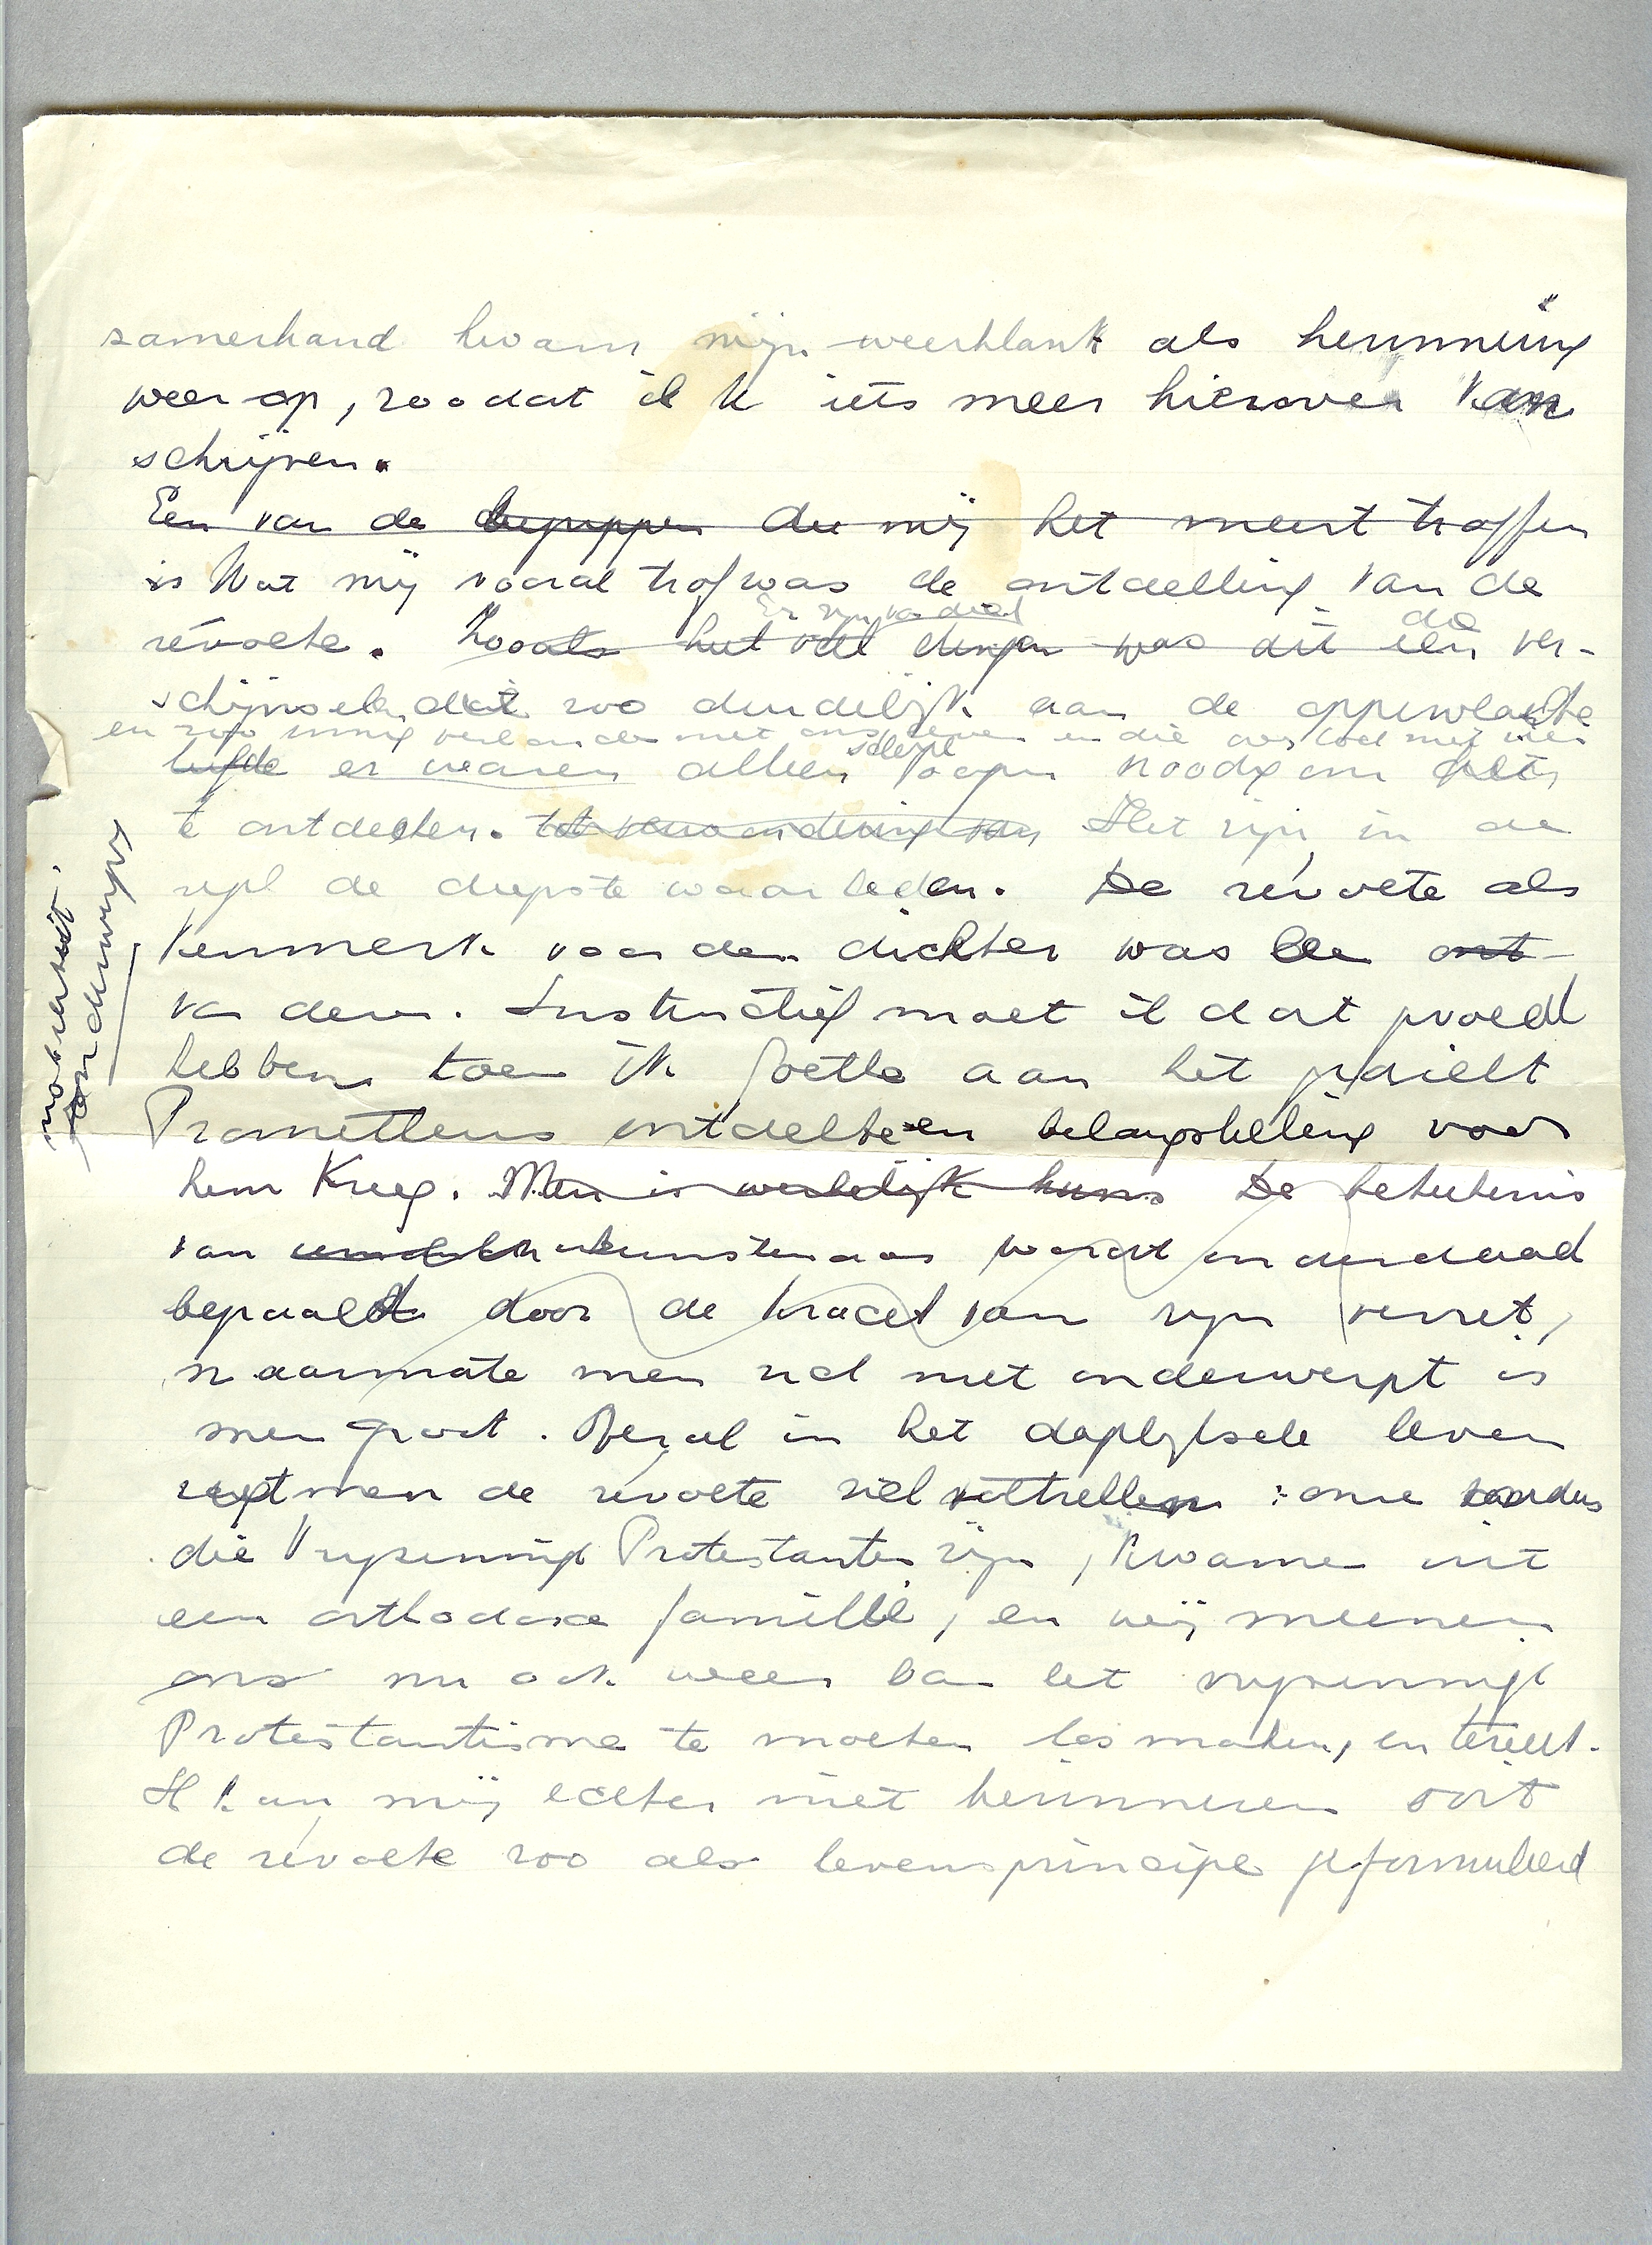 zamerhand kwam mijn weerklank als herinnering
weer op, zoodat ik iets meer hierover kan
schrijven.
Een van de begrippen die mij het meest troffen
is Wat mij vooral trof was de ontdekking van de
révolte. Zooals het veel dingen was dit een ver-
Er zijn van die
de
schijnselen dat zoo duidelijk aan de oppervlakte
en zoo innig verbonden met ons leven en die
liefde er waren alleen scherpe oogen noodig om
te ontdekken. tot verwondering van Het zijn in de
regel de diepste waarheden. De révolte als
kenmerk voor den dichter was één ont-
van deze. Instinctief moet ik dat gevoeld
hebben toen ik Goethe aan het gedicht
Prometheus ontdekte en belangstelling voor
hem kreeg. Men is werkelijk kuns De beteekenis
van kunstenaar wordt inderdaad
bepaald door de kracht van zijn verzet,
naarmate men zich niet onderwerpt is
men groot. Overal in het dagelijksche leven
ziet men de révolte zich voltrekken: onze ouders
die Vrijzinnige Protestanten zijn, kwamen uit
een orthodoxe familie, en wij meenen
ons nu ook weer van het vrijzinnige
Protestantisme te moeten losmaken, en terecht.
Ik kan mij echter niet herinneren ooit
de révolte zoo als levensprincipe geformuleerd